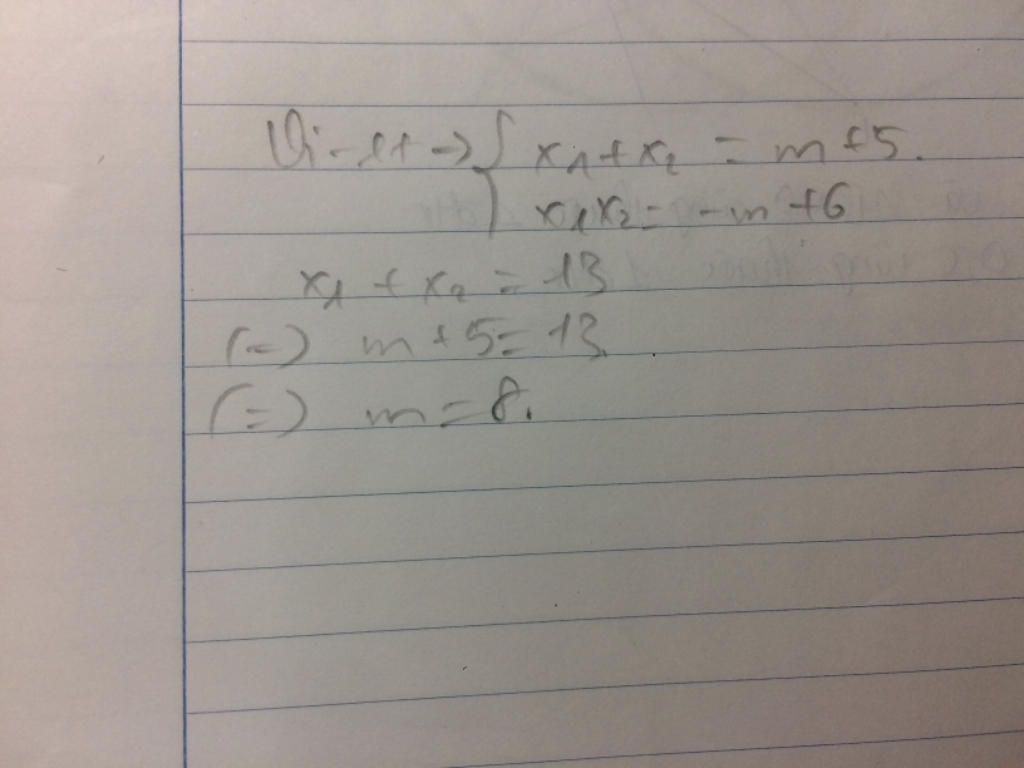 Vi-ét → { x₁ + x₂ = m + 5.
x₁x₂ = -m + 6
x₁ + x₂ = 13
(=) m + 5 = 13
(=) m = 8.